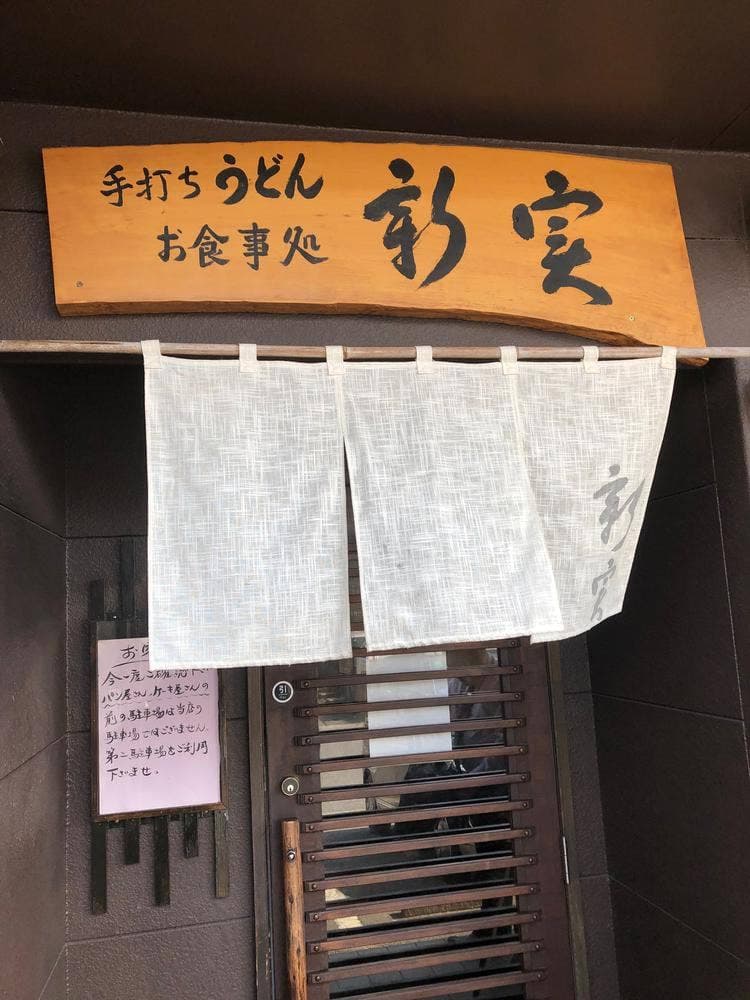 手打ちうどん
お食事処
新実
新実
お
今一度ご確認下
パン屋さん、ケーキ屋さんの
前の駐車場は当店の
駐車場ではございません。
第二駐車場をご利用
下さいませ。
引